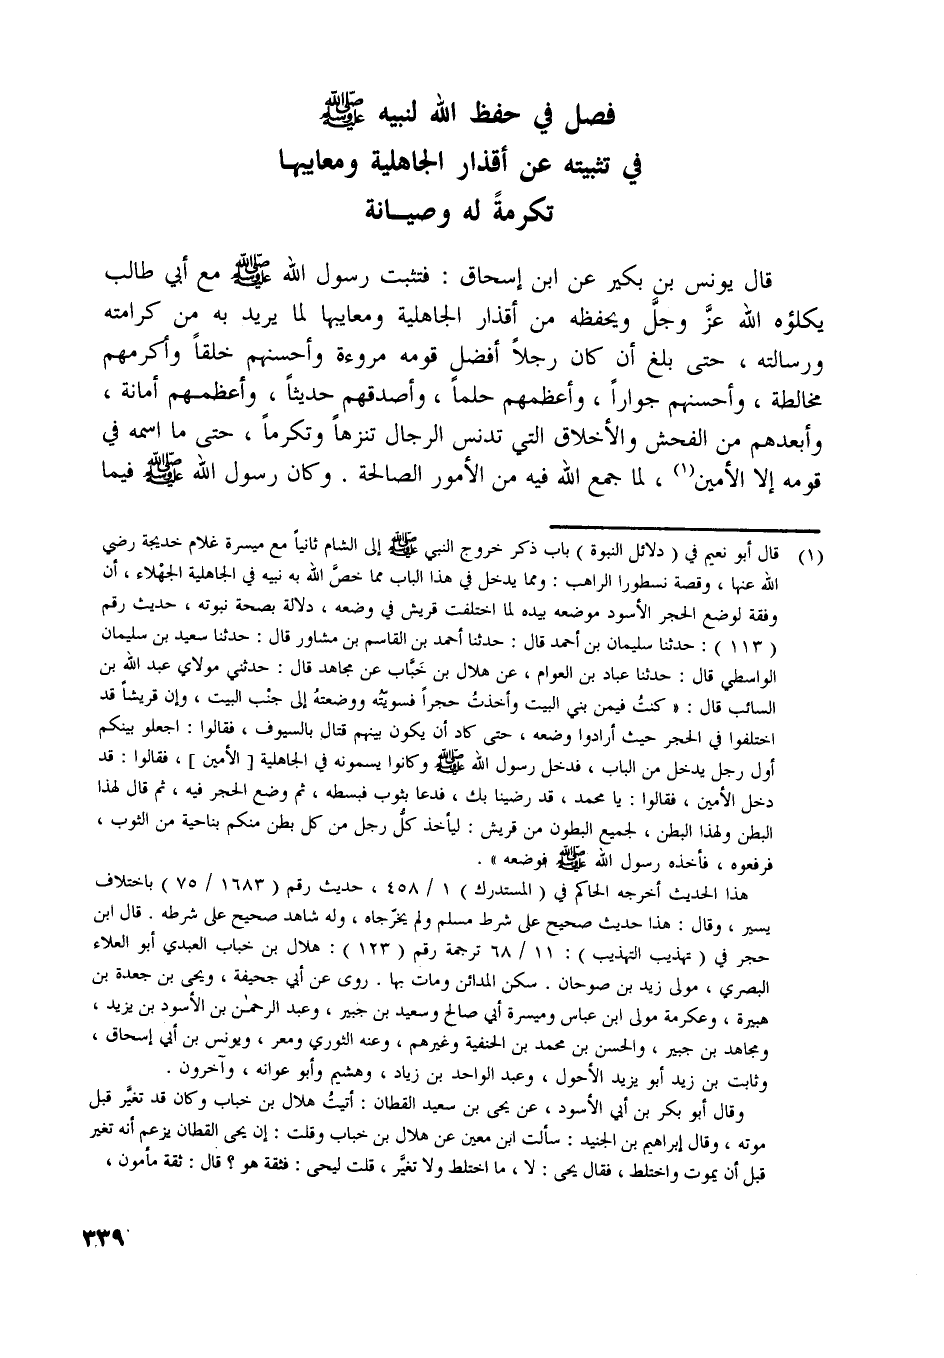 فصل في حفظ الله لنبيه ﷺ
في تثبيته عن أقذار الجاهلية ومعايبها
تكرمةً له وصيــانة
قال يونس بن بكير عن ابن إسحاق : فتثبت رسول الله ﷺ مع أبي طالب
يكلؤه الله عزَّ وجلَّ ويحفظه من أقذار الجاهلية ومعايبها لما يريد به من كرامته
ورسالته ، حتى بلغ أن كان رجلاً أفضل قومه مروءة وأحسنهم خلقاً وأكرمهم
مخالطة ، وأحسنهم جواراً ، وأعظمهم حلماً ، وأصدقهم حديثاً ، وأعظمهم أمانة ،
وأبعدهم من الفحش والأخلاق التي تدنس الرجال تنزهاً وتكرماً ، حتى ما اسمه في
قومه إلا الأمين(١) ، لما جمع الله فيه من الأمور الصالحة . وكان رسول الله ﷺ فيما
(١) قال أبو نعيم في ( دلائل النبوة ) باب ذكر خروج النبي ﷺ إلى الشام ثانياً مع ميسرة غلام خديجة رضي
الله عنها ، وقصة نسطورا الراهب : ومما يدخل في هذا الباب مما خصَّ الله به نبيه في الجاهلية الجهْلاء ، أن
وفقه لوضع الحجر الأسود موضعه بيده لما اختلفت قريش في وضعه ، دلالة بصحة نبوته ، حديث رقم
( ١١٣ ) : حدثنا سليمان بن أحمد قال : حدثنا أحمد بن القاسم بن مشاور قال : حدثنا سعيد بن سليمان
الواسطي قال : حدثنا عباد بن العوام ، عن هلال بن خَبَّاب عن مجاهد قال : حدثني مولاي عبد الله بن
السائب قال : « كنتُ فيمن بني البيت وأخذتُ حجراً فسويَّتُه ووضعتهُ إلى جنْب البيت ، وإن قريشاً قد
اختلفوا في الحجر حيث أرادوا وضعه ، حتى كاد أن يكون بينهم قتال بالسيوف ، فقالوا : اجعلو بينكم
أول رجل يدخل من الباب ، فدخل رسول الله ﷺ وكانوا يسمونه في الجاهلية [ الأمين ] ، فقالوا : قد
دخل الأمين ، فقالوا : يا محمد ، قد رضينا بك ، فدعا بثوب فبسطه ، ثم وضع الحجر فيه ، ثم قال لهذا
البطن ولهذا البطن ، لجميع البطون من قريش : ليأخذ كلُّ رجل من كل بطن منكم بناحية من الثوب ،
فرفعوه ، فأخذه رسول الله ﷺ فوضعه » .
هذا الحديث أخرجه الحاكم في ( المستدرك ) ١ / ٤٥٨ ، حديث رقم ( ١٦٨٣ / ٧٥ ) باختلاف
يسير ، وقال : هذا حديث صحيح على شرط مسلم ولم يخرّجاه ، وله شاهد صحيح على شرطه . قال ابن
حجر في ( تهذيب التهذيب ) : ١١ / ٦٨ ترجمة رقم ( ١٢٣ ) : هلال بن خباب العبدي أبو العلاء
البصري ، مولى زيد بن صوحان . سكن المدائن ومات بها . روى عن أبي جحيفة ، ويحيى بن جعدة بن
هبيرة ، وعكرمة مولى ابن عباس وميسرة أبي صالح وسعيد بن جبير ، وعبد الرحمٰن بن الأسود بن يزيد ،
ومجاهد بن جبير ، والحسن بن محمد بن الحنفية وغيرهم ، وعنه الثوري ومعر ، ويونس بن أبي إسحاق ،
وثابت بن زيد أبو يزيد الأحول ، وعبد الواحد بن زياد ، وهشيم وأبو عوانه ، وآخرون .
وقال أبو بكر بن أبي الأسود ، عن يحيى بن سعيد القطان : أتيتُ هلال بن خباب وكان قد تغيَّر قبل
موته ، وقال إبراهيم بن الجنيد : سألت ابن معين عن هلال بن خباب وقلت : إن يحيى القطان يزعم أنه تغير
قبل أن يموت واختلط ، فقال يحيى : لا ، ما اختلط ولا تغيَّر ، قلت ليحيى : فثقة هو ؟ قال : ثقة مأمون ،
٣٣٩